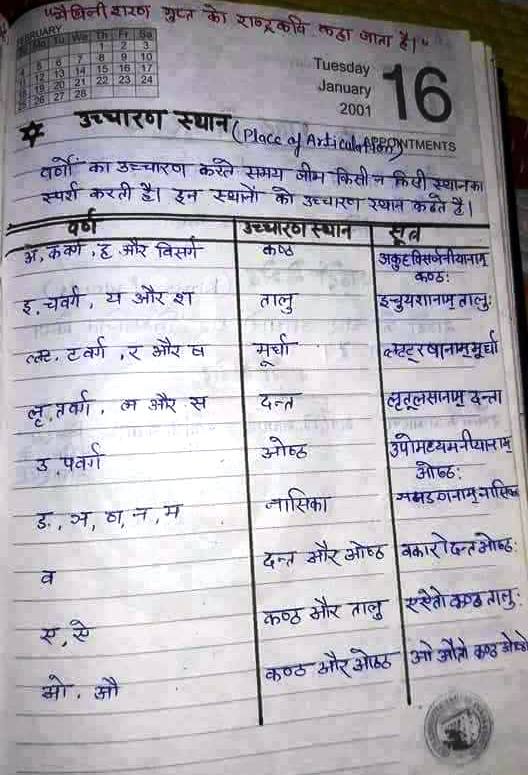 "मैथिली शरण गुप्त को राष्ट्रकवि कहा जाता है।"
FEBRUARY
Mo Tu We Th Fr Sa
1 2 3
4 5 6 7 8 9 10
12 13 14 15 16 17
18 19 20 21 22 23 24
25 26 27 28
Tuesday
January
2001
16
APPOINTMENTS
उच्चारण स्थान (Place of Articulation)
वर्णों का उच्चारण करते समय जीभ किसी न किसी स्थान का
स्पर्श करती है। इन स्थानों को उच्चारण स्थान कहते है।
वर्ण उच्चारण स्थान सूत्र
अ, कवर्ग, ह और विसर्ग कण्ठ अकुहविसर्जनीयानाम् कण्ठः
इ, चवर्ग, य और श तालु इचुयशानाम् तालुः
ऋ, टवर्ग, र और ष मूर्धा ऋटुरषानाम् मूर्धा
लृ, तवर्ग, ल और स दन्त लृतुलसानाम् दन्ता
उ, पवर्ग ओष्ठ उपोमध्यमनीयानाम् ओष्ठः
ङ, ञ, ण, न, म नासिका
व दन्त और ओष्ठ वकारो दन्त ओष्ठः
ए, ऐ कण्ठ और तालु एऐतो कण्ठ तालुः
ओ, औ कण्ठ और ओष्ठ ओ औतो कण्ठ ओष्ठो